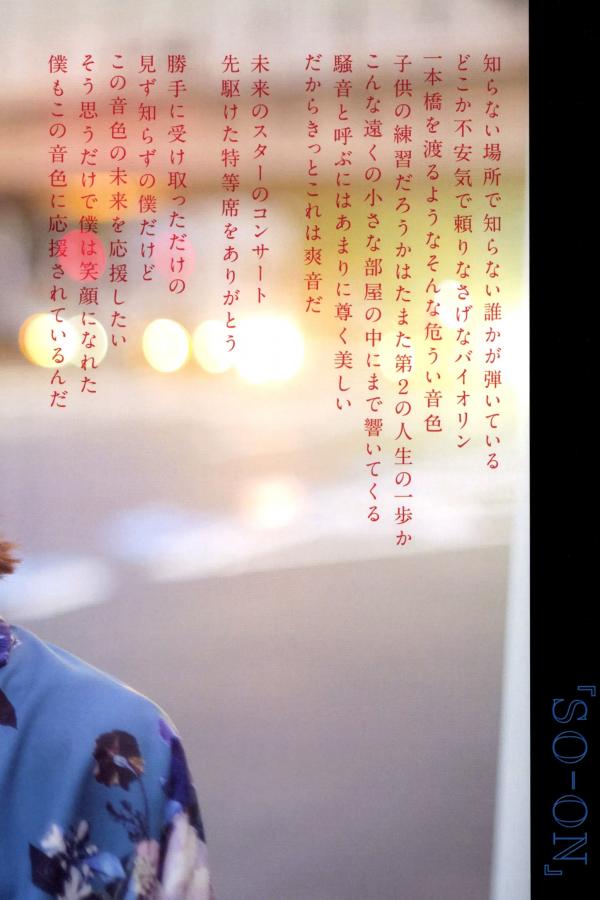 『SO-ON』
知らない場所で知らない誰かが弾いている
どこか不安気で頼りなさげなバイオリン
一本橋を渡るようなそんな危うい音色
子供の練習だろうかはたまた第2の人生の一歩か
こんな遠くの小さな部屋の中にまで響いてくる
騒音と呼ぶにはあまりに尊く美しい
だからきっとこれは爽音だ
未来のスターのコンサート
先駆けた特等席をありがとう
勝手に受け取っただけの
見ず知らずの僕だけど
この音色の未来を応援したい
そう思うだけで僕は笑顔になれた
僕もこの音色に応援されているんだ